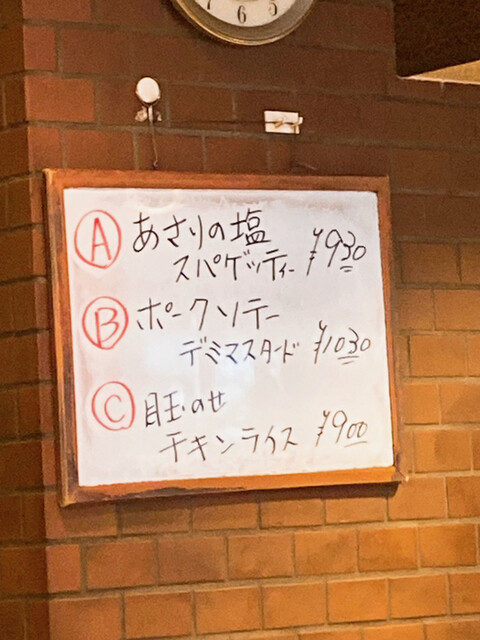 7 6 5
A あさりの塩
スパゲッティー ¥930
B ポークソテー
デミマスタード ¥1030
C 目玉のせ
チキンライス ¥900